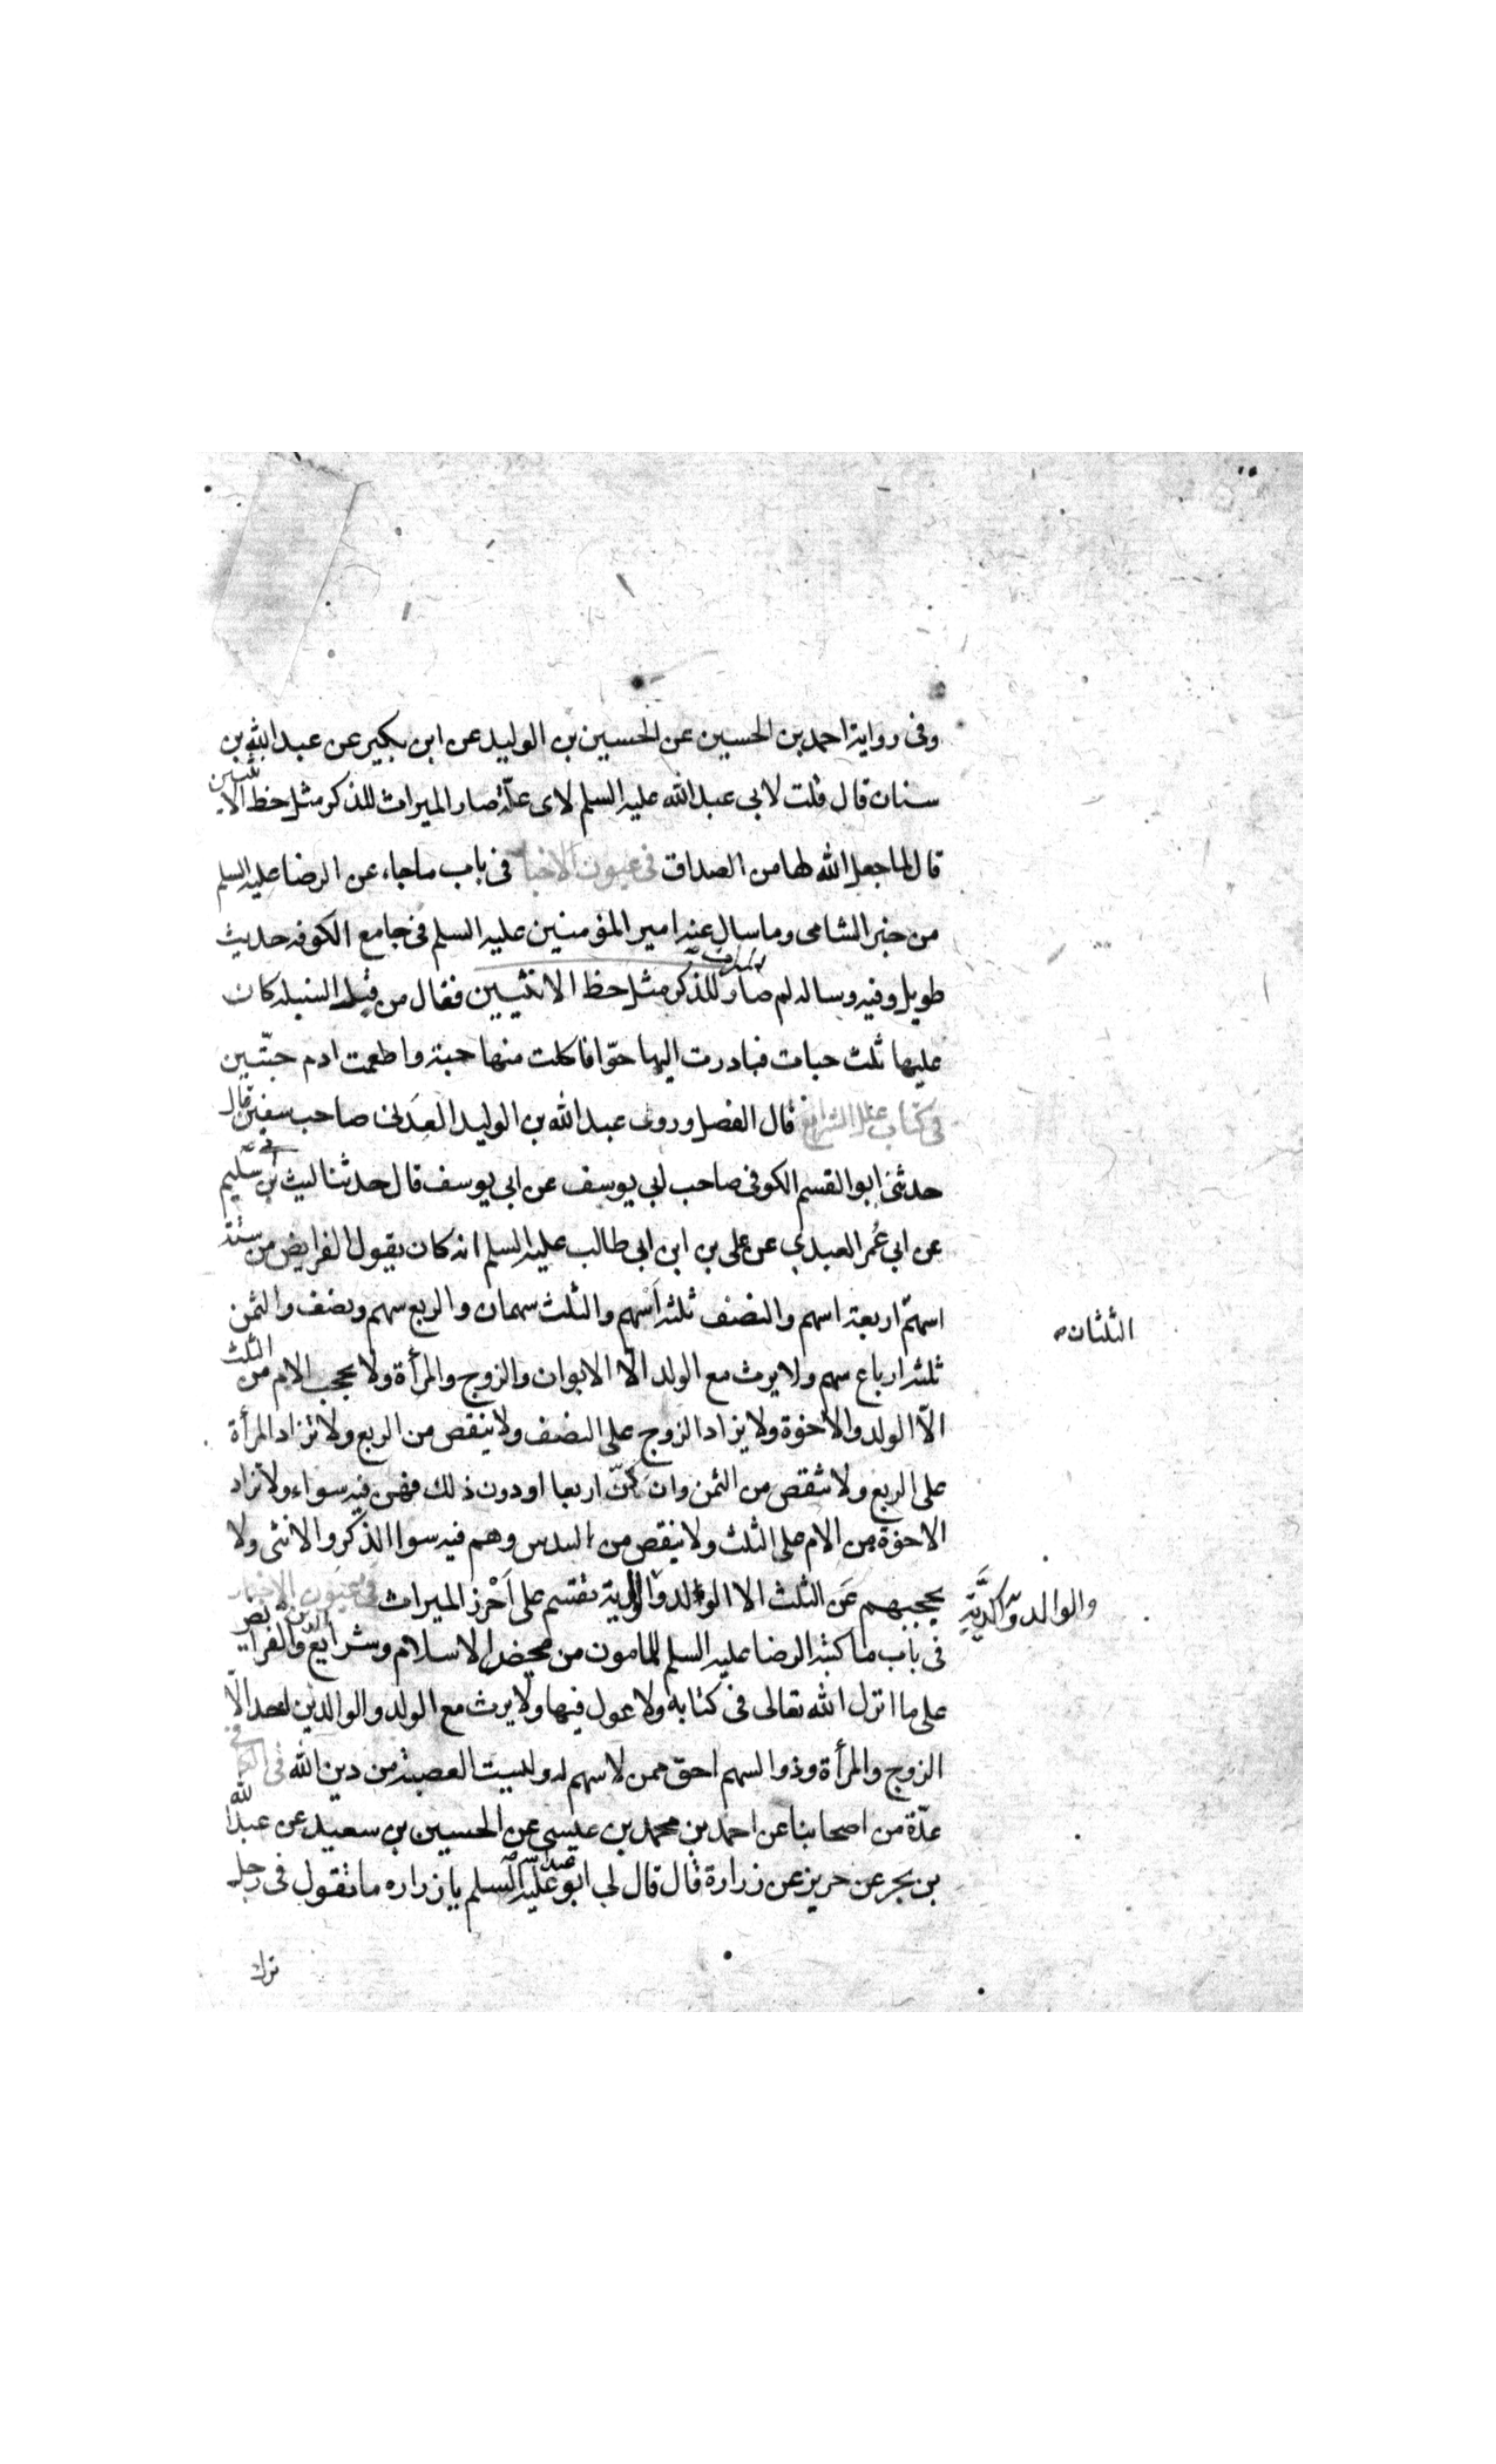 وفى رواية احمد بن الحسين عن الحسين بن الوليد عن ابن بكير عن عبد الله بن
سنان قال قلت لابى عبد الله عليه السلم لاى علة صار الميراث للذكر مثل حظ الانثيين
قال لما جعل الله لها من الصداق فى عيون الاخبار فى باب ما جاء عن الرضا عليه السلم
من خبر الشامى وما سال عنه امير المؤمنين عليه السلم فى جامع الكوفه حديث
طويل وفيه وساله لم صار الميراث للذكر مثل حظ الانثيين فقال من قبل السنبله كان
عليها ثلث حبات فبادرت اليها حوّا فاكلت منها حبة واطعمت ادم حبّتين
فى كتاب علل الشرايع قال الفضل وروى عبد الله بن الوليد العدنى صاحب سفين قال
حدثنى ابو القسم الكوفى صاحب ابى يوسف عن ابى يوسف قال حدثنا ليث بن سليم
عن ابى عُمر العبدي عن على بن ابى ابى طالب عليه السلم انه كان يقول الفرايض من ستة
اسهم اربعة اسهم والنصف ثلثه اَسْهم والثلث سهمان والربع سهم ونصف والثمن
الثلثان
ثلثه ارباع سهم ولا يرث مع الولد الّا الابوان والزوج والمرأة ولا يحجب الام من الثلث
الّا الولد والاخوة ولا يزاد الزوج على النصف ولا ينقص من الربع ولا تزاد المرأة
على الربع ولا تنقص من الثمن وان كنّ اربعا او دون ذلك فهن فيه سواء ولا تزاد
الاخوة من الام على الثلث ولا ينقص من السدس وهم فيه سوا الذكر والانثى ولا
يحجبهم عَن الثلث الا الولد والدية تقتسم على اَحْرز الميراث فى عيون الاخبار
والوالد والدِّيَة
فى باب ما كتبه الرضا عليه السلم للمامون من محض الاسلام وشرايع الدين والفرايض
على ما انزل الله تعالى فى كتابه ولا عول فيها ولا يرث مع الولد والوالدين احد الّا
الزوج والمرأة وذو السهم احق ممن لا سهم له وليست العصبة من دين الله فى الكافى
عدّة من اصحابنا عن احمد بن محمد بن عيسى عن الحسين بن سعيد عن عبد الله
بن بحر عن حريز عن زرارة قال قال لى ابو عبد الله عليه السلم يا زراره ما تقول فى رجل
ترك